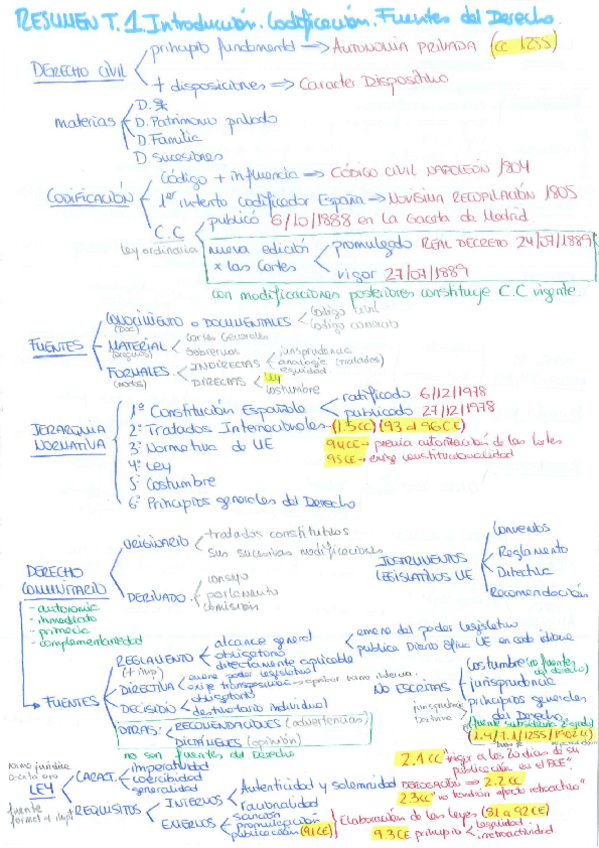 RESUMEN T. 1. Introducción. Codificación. Fuentes del Derecho.
principio fundamental → AUTONOMIA PRIVADA (CC 1255)
DERECHO CIVIL
+ disposiciones ⇒ Caracter Dispositivo
D.
materias D. Patrimonio privado
D. Familia
D. sucesiones
Código + influencia → CÓDIGO CIVIL NAPOLEÓN 1804
CODIFICACIÓN 1er intento codificador España → NOVISIMA RECOPILACIÓN 1805
C.C publicó 6/10/1888 en la Gaceta de Madrid.
ley ordinaria nueva edición promulgado REAL DECRETO 24/07/1889
x las Cortes vigor 27/07/1889
con modificaciones posteriores constituye C.C vigente.
CONOCIMIENTO o DOCUMENTALES Código Civil
(Doc) Código comercio
FUENTES MATERIAL Cortes Generales
Gobierno
FORMALES INDIRECTAS jurisprudencia
analogía (tratados)
equidad
(modos) DIRECTAS ley
costumbre
1º Constitución Española ratificado 6/12/1978
publicado 27/12/1978
JERARQUIA NORMATIVA 2º Tratados Internacionales (1.5 CC) (93 al 96 CE)
3º Normativa de UE 94 CE → previa autorización de las Cortes
4º Ley 95 CE → exige constitucionalidad
5º Costumbre
6º Principios generales del Derecho
ORIGINARIO tratados constitutivos
sus sucesivas modificaciones
DERECHO COMUNITARIO
- autonomia
- inmediato
- primacia
- complementariedad
DERIVADO consejo
parlamento
comisión
INSTRUMENTOS LEGISLATIVOS UE
Convenios
Reglamento
Directiva
Recomendación
FUENTES
REGLAMENTO (+ imp) alcance general
obligatorio
directamente aplicable
emana del poder legislativo
publica Diario Oficial UE en cada idioma
DIRECTIVA emana poder legislativo
exige transposición → aprobar norma interna.
DECISIÓN obligatorio
destinatario individual
OTRAS: RECOMENDACIONES (advertencias)
DICTÁMENES (opinión)
no son fuentes del Derecho
NO ESCRITAS Costumbre (no fuente del derecho)
jurisprudencia
principios generales del Derecho
jurisprudencia
Doctrina
(fuente subsidiaria 2º grado)
1.4/7.1/1255/1902 CC
norma jurídica
LEY
fuente formal + imp
CARACT. imperatividad
coercibilidad
generalidad
2.1 CC "vigor a los 20 días de su publicación en el BOE".
REQUISITOS INTERNOS Autenticidad y solemnidad
racionalidad
DEROGACIÓN → 2.2 CC
2.3 CC "no tendrán efecto retroactivo"
EXTERNOS sanción
promulgación
publicación (91 CE)
Elaboración de las leyes (81 a 92 CE)
9.3 CE principio legalidad
irretroactividad.